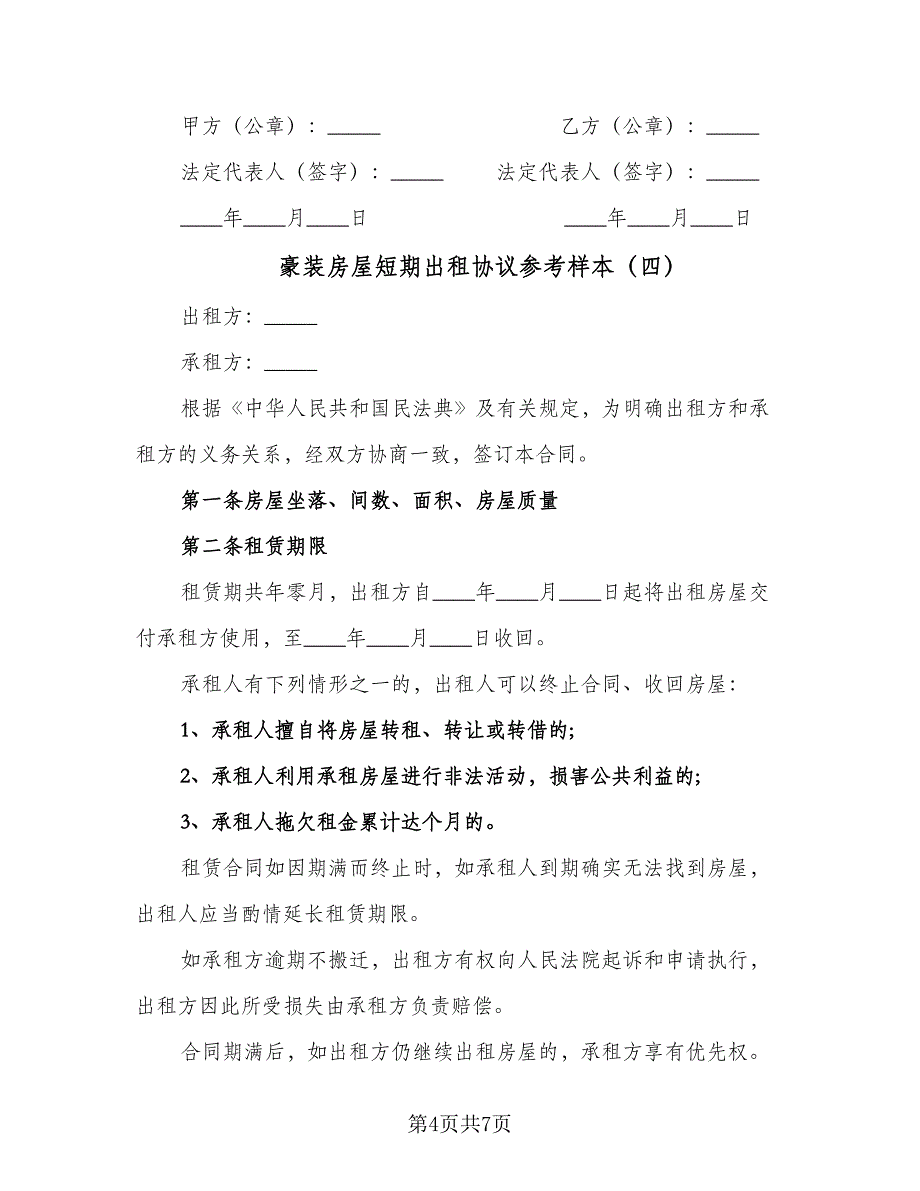 甲方（公章）：_____ 乙方（公章）：_____
法定代表人（签字）：_____ 法定代表人（签字）：_____
____年____月____日 ____年____月____日
豪装房屋短期出租协议参考样本（四）
出租方：_____
承租方：_____
根据《中华人民共和国民法典》及有关规定，为明确出租方和承
租方的义务关系，经双方协商一致，签订本合同。
第一条房屋坐落、间数、面积、房屋质量
第二条租赁期限
租赁期共年零月，出租方自____年____月____日起将出租房屋交
付承租方使用，至____年____月____日收回。
承租人有下列情形之一的，出租人可以终止合同、收回房屋：
1、承租人擅自将房屋转租、转让或转借的;
2、承租人利用承租房屋进行非法活动，损害公共利益的;
3、承租人拖欠租金累计达个月的。
租赁合同如因期满而终止时，如承租人到期确实无法找到房屋，
出租人应当酌情延长租赁期限。
如承租方逾期不搬迁，出租方有权向人民法院起诉和申请执行，
出租方因此所受损失由承租方负责赔偿。
合同期满后，如出租方仍继续出租房屋的，承租方享有优先权。
第4页共7页